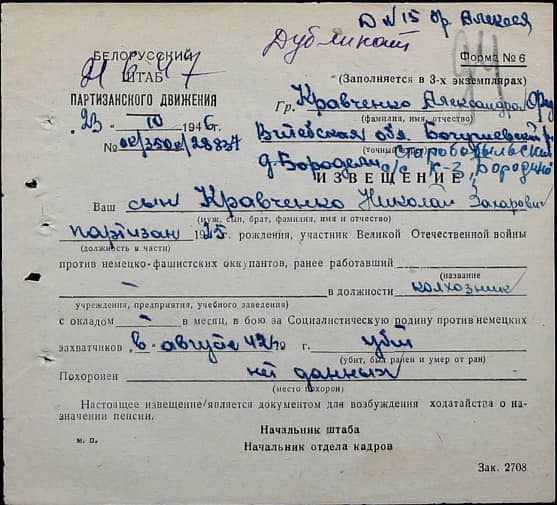 Д N 15 бр. Алексея
Дубликат
БЕЛОРУССКИЙ
ШТАБ
ПАРТИЗАНСКОГО ДВИЖЕНИЯ
23 IV 1946 г.
№ 28837
Форма № 6
(Заполняется в 3-х экземплярах)
Гр. Кравченко Александра
(фамилия, имя, отчество)
Витебская обл. Богушевский
(точный
д. Бородели с/с к-з „Бородино"
ИЗВЕЩЕНИЕ
Ваш сын Кравченко Николай Захарович
(муж, сын, брат, фамилия, имя и отчество)
партизан 1925 г. рождения, участник Великой Отечественной войны
(должность в части)
против немецко-фашистских оккупантов, ранее работавший
(название
— в должности колхозник
учреждения, предприятия, учебного заведения)
с окладом — в месяц, в бою за Социалистическую родину против немецких
захватчиков в августе 42го г. убит
(убит, был ранен и умер от ран)
Похоронен нет данных
(место похорон)
Настоящее извещение является документом для возбуждения ходатайства о на-
значении пенсии.
Начальник штаба
м. п.
Начальник отдела кадров
Зак. 2708